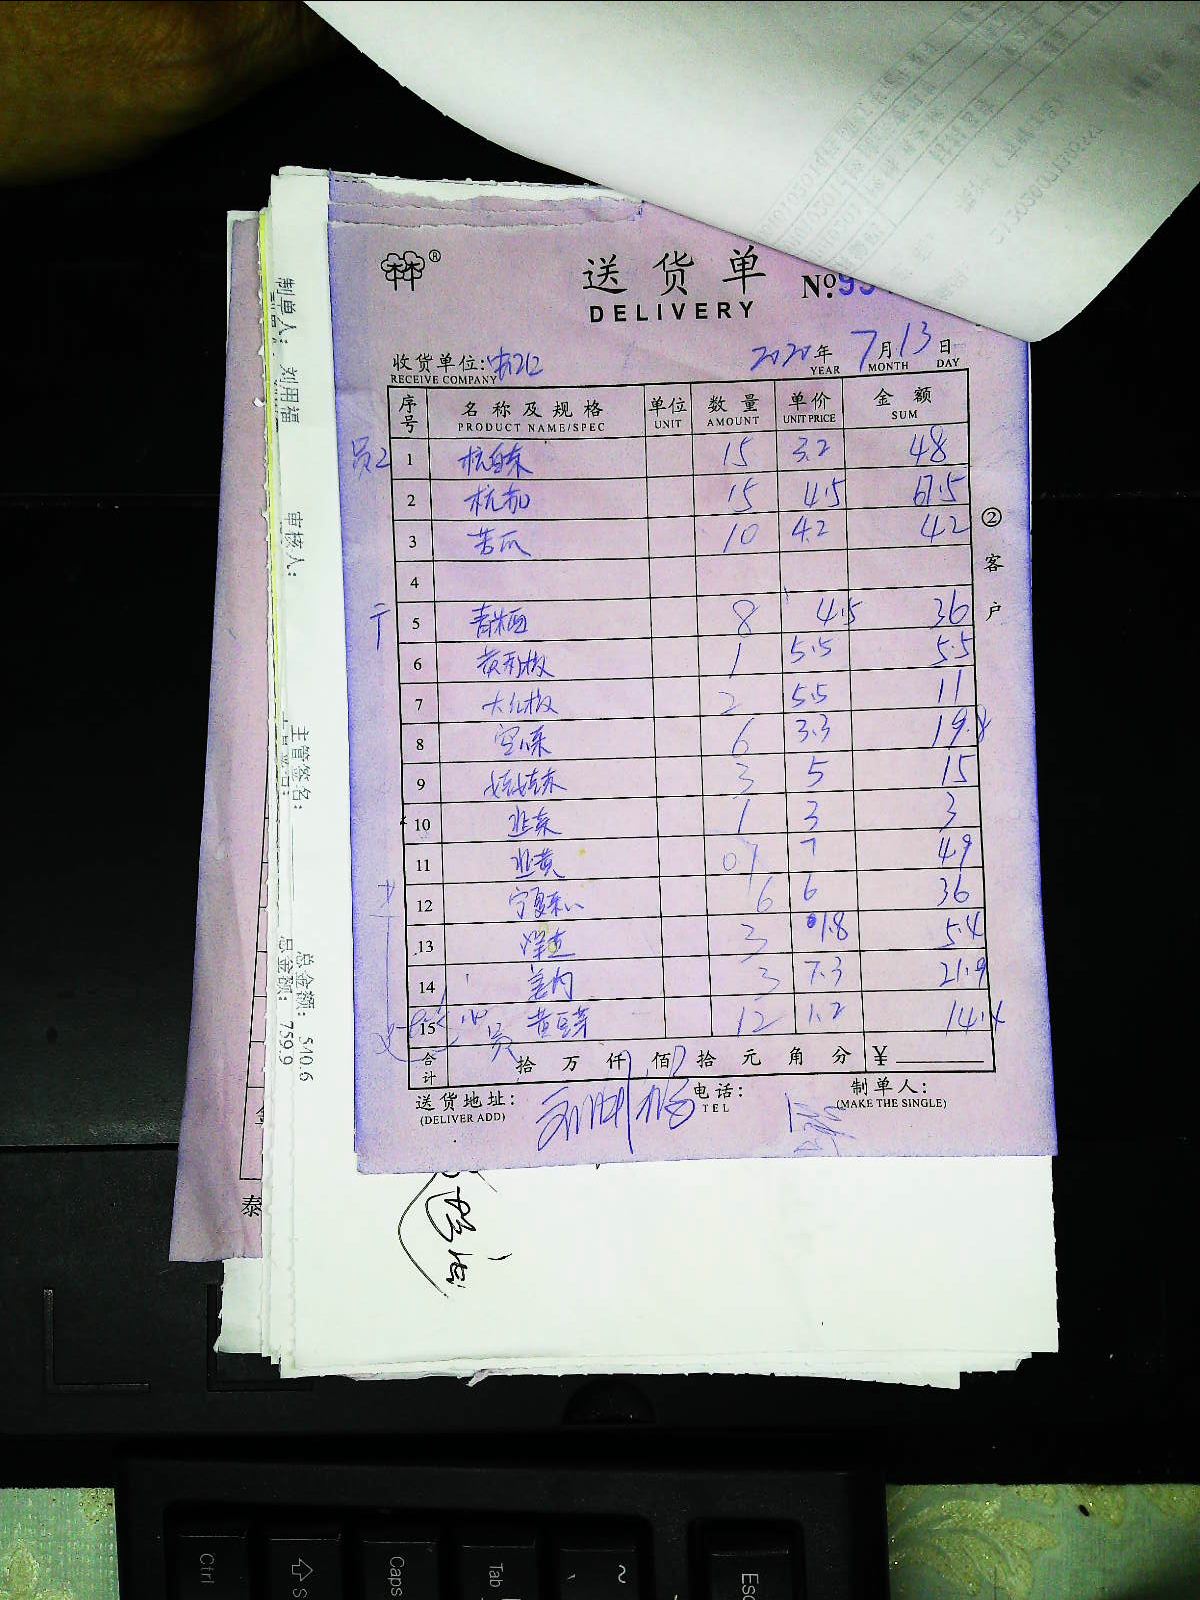 送货单
DELIVERY
№99
收货单位:
RECEIVE COMPANY
2020年 7月13日
YEAR MONTH DAY
序号 名称及规格 单位 数量 单价 金额
PRODUCT NAME/SPEC UNIT AMOUNT UNIT PRICE SUM
员2 1 杭白菜 15 3.2 48
2 杭茄 15 4.5 67.5
3 苦瓜 10 4.2 42
4
干 5 8 4.5 36
6 黄利椒 1 5.5 5.5
7 大红椒 2 5.5 11
8 空心菜 6 3.3 19.8
9 娃娃菜 3 5 15
10 韭菜 1 3 3
11 韭黄 0.7 7 4.9
12 宁夏菜心 6 6 36
13 洋葱 3 1.8 5.4
14 姜肉 3 7.3 21.9
15 黄豆芽 12 1.2 14.4
合计 拾 万 仟 佰 拾 元 角 分 ¥
送货地址: 电话: 制单人:
(DELIVER ADD) TEL (MAKE THE SINGLE)
②客户
制单人: 刘用福
审核人:
主管签名:
总金额: 540.6
总金额: 759.9
泰
Ctrl
Caps
Tab
~
Esc